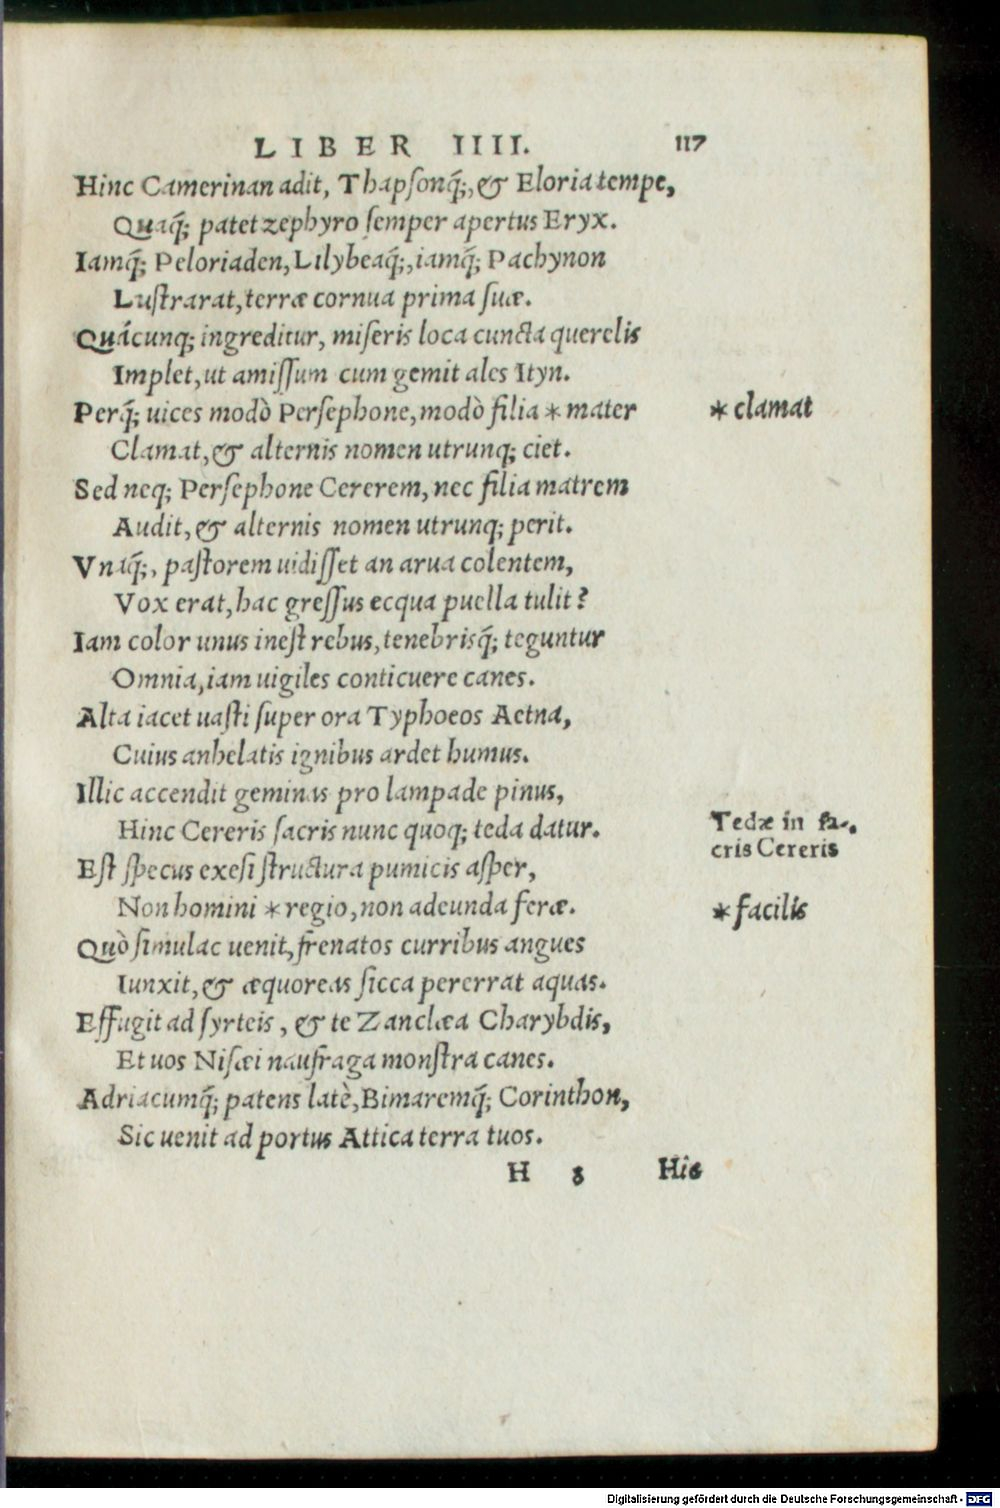 LIBER IIII. 117
Hinc Camerinan adit, Thapsonq́;, & Eloria tempe,
Quaq́; patet zephyro semper apertus Eryx.
Iamq́; Peloriaden, Lilybeaq́;, iamq́; Pachynon
Lustrarat, terræ cornua prima suæ.
Quácunq; ingreditur, miseris loca cuncta querelis
Implet, ut amissum cum gemit ales Ityn.
Perq́; uices modò Persephone, modò filia * mater * clamat
Clamat, & alternis nomen utrunq; ciet.
Sed neq; Persephone Cererem, nec filia matrem
Audit, & alternis nomen utrunq; perit.
Vnaq́;, pastorem uidisset an arua colentem,
Vox erat, hac gressus ecqua puella tulit?
Iam color unus inest rebus, tenebrisq́; teguntur
Omnia, iam uigiles conticuere canes.
Alta iacet uasti super ora Typhoeos Aetna,
Cuius anhelatis ignibus ardet humus.
Illic accendit geminas pro lampade pinus,
Hinc Cereris sacris nunc quoq; teda datur. Tedæ in sa-
cris Cereris
Est specus exesi structura pumicis asper,
Non homini * regio, non adeunda feræ. * facilis
Quò simulac uenit, frenatos curribus angues
Iunxit, & æquoreas sicca pererrat aquas.
Effugit ad syrteis, & te Zanclæa Charybdis,
Et uos Nisæi naufraga monstra canes.
Adriacumq́; patens latè, Bimaremq́; Corinthon,
Sic uenit ad portus Attica terra tuos.
H 8 His
Digitalisierung gefördert durch die Deutsche Forschungsgemeinschaft - DFG